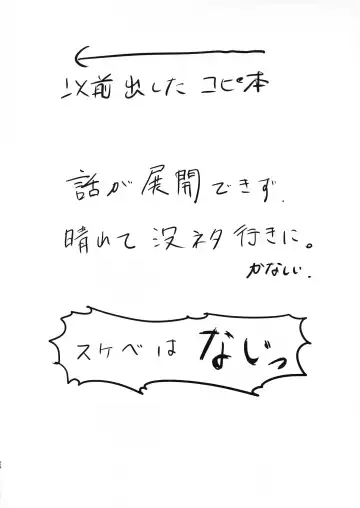 以前出したコピ本
話が展開できず.
晴れて没ネタ行きに。
かなしい.
スケベは なしっ